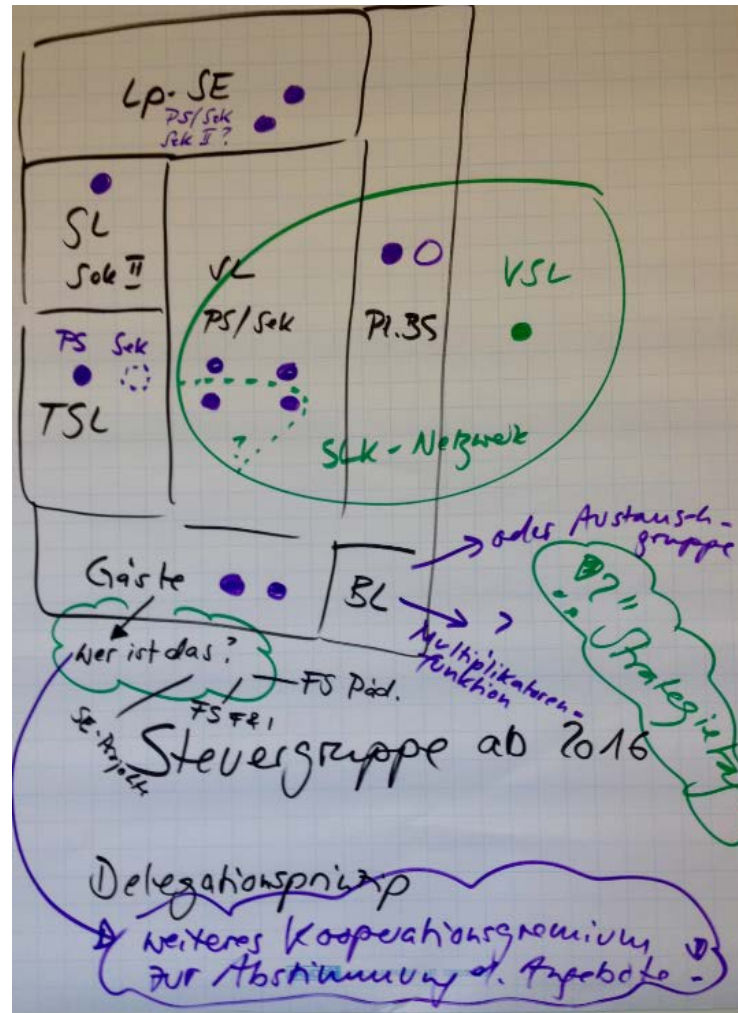 Lp-SE
PS/Sek
Sek II?
SL
Sek II
PS Sek
TSL
PS/Sek
VSL
SLK-Netzwerk
Gäste
BL
oder Austausch-
gruppe
Multiplikatoren-
funktion
?
wer ist das?
FS Päd.
SE-Projekte
Steuergruppe ab 2016
Delegationsprinzip
weiteres Kooperationsgremium
zur Abstimmung d. Angebote